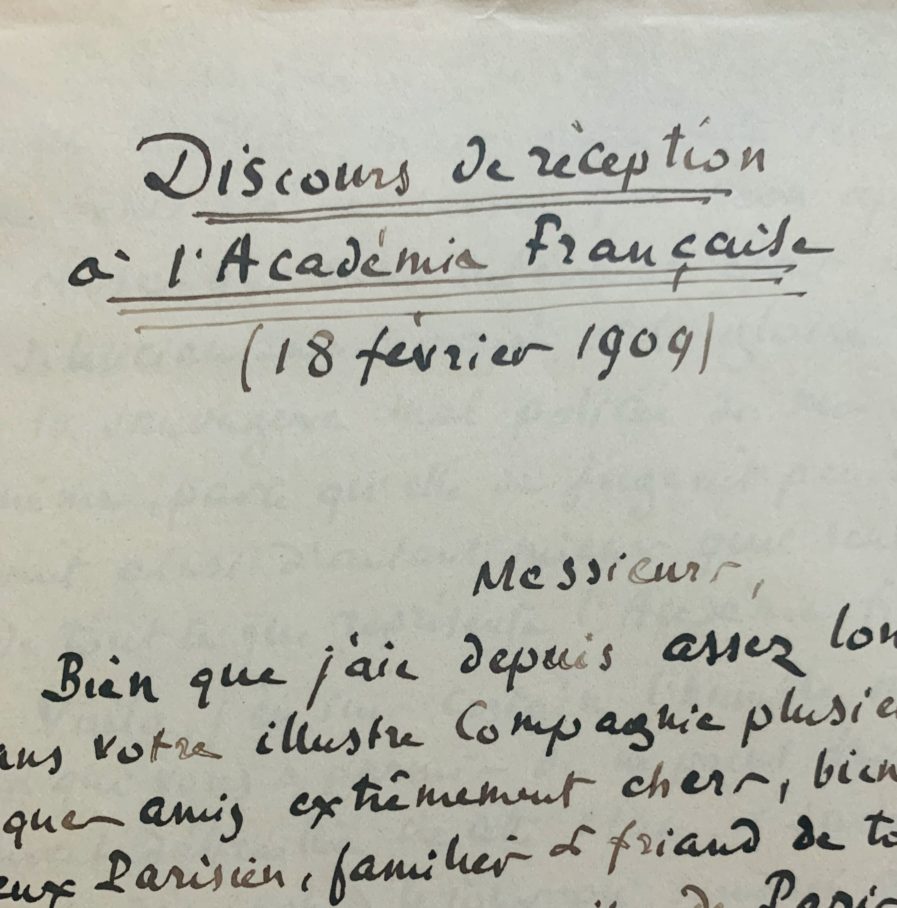 Discours de réception
à l'Académie Française
(18 février 1909)
Messieurs,
Bien que j'aie depuis assez lon
ans votre illustre Compagnie plusie
que amis extrêmement chers, bien
eux Parisien, familier & friand de to
de Paris